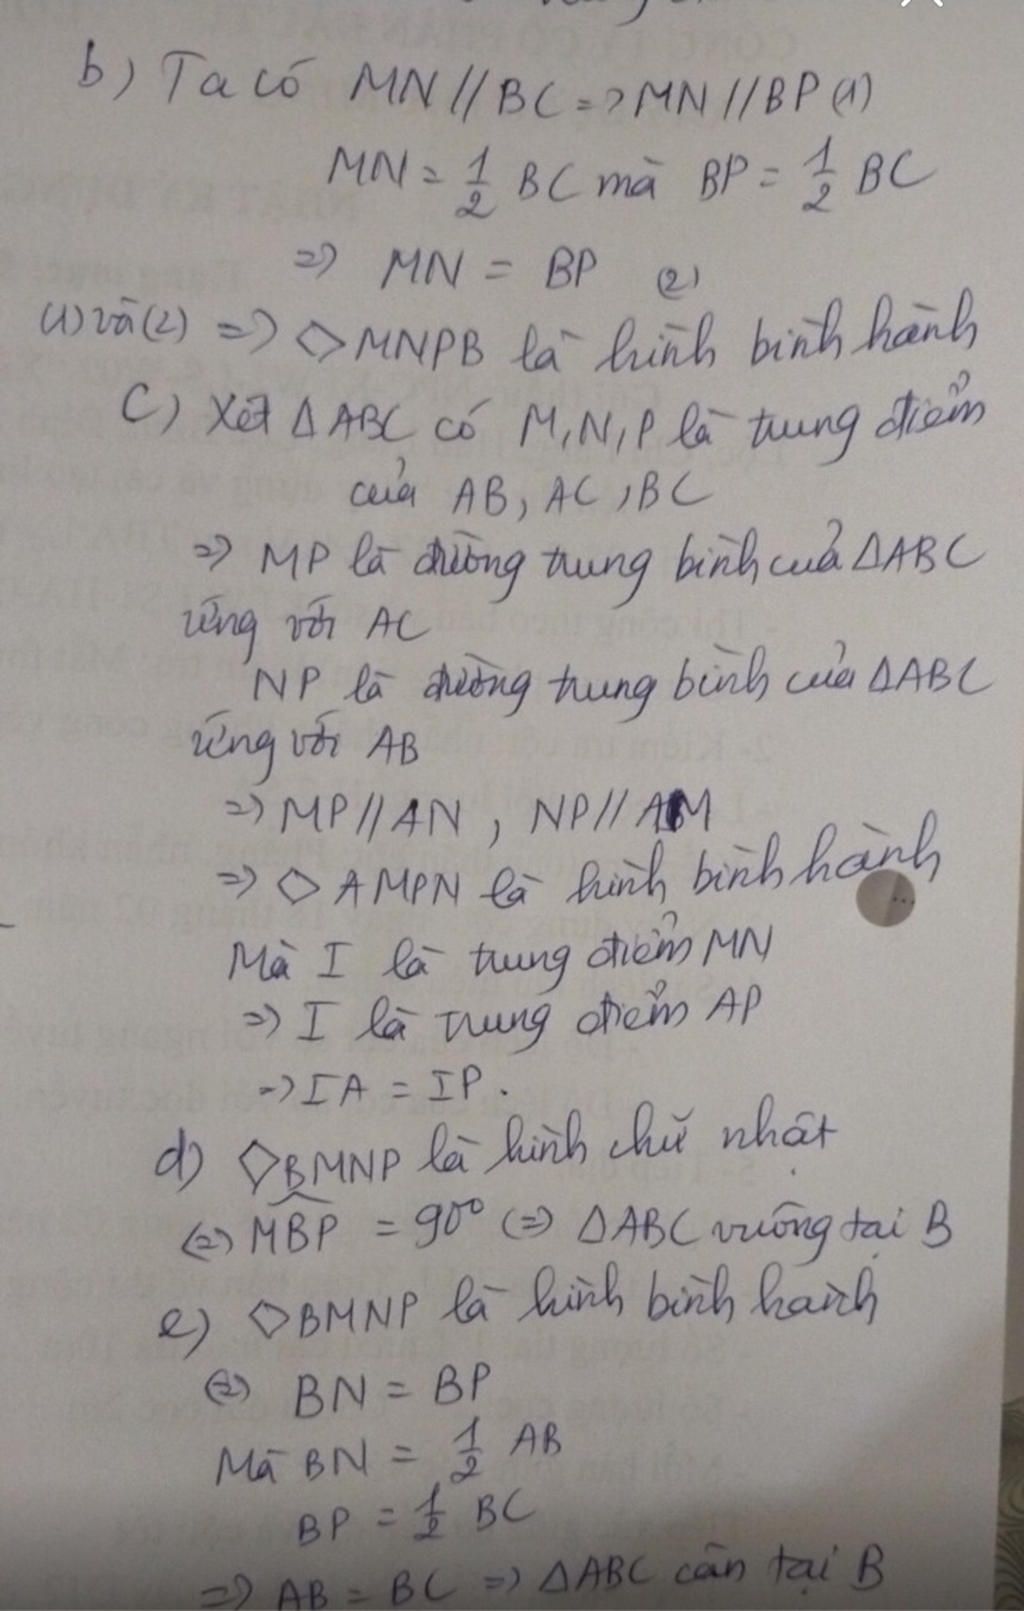 b) Ta có MN // BC => MN // BP (1)
MN = 1/2 BC mà BP = 1/2 BC
=> MN = BP (2)
(1) và (2) => ◇MNPB là hình bình hành
C) Xét ΔABC có M, N, P là trung điểm
của AB, AC, BC
=> MP là đường trung bình của ΔABC
ứng với AC
NP là đường trung bình của ΔABC
ứng với AB
=> MP // AN, NP // AM
=> ◇AMPN là hình bình hành
Mà I là trung điểm MN
=> I là trung điểm AP
=> IA = IP.
d) ◇BMNP là hình chữ nhật
<=> MBP = 90° <=> ΔABC vuông tại B
e) ◇BMNP là hình bình hành
<=> BN = BP
Mà BN = 1/2 AB
BP = 1/2 BC
=> AB = BC => ΔABC cân tại B